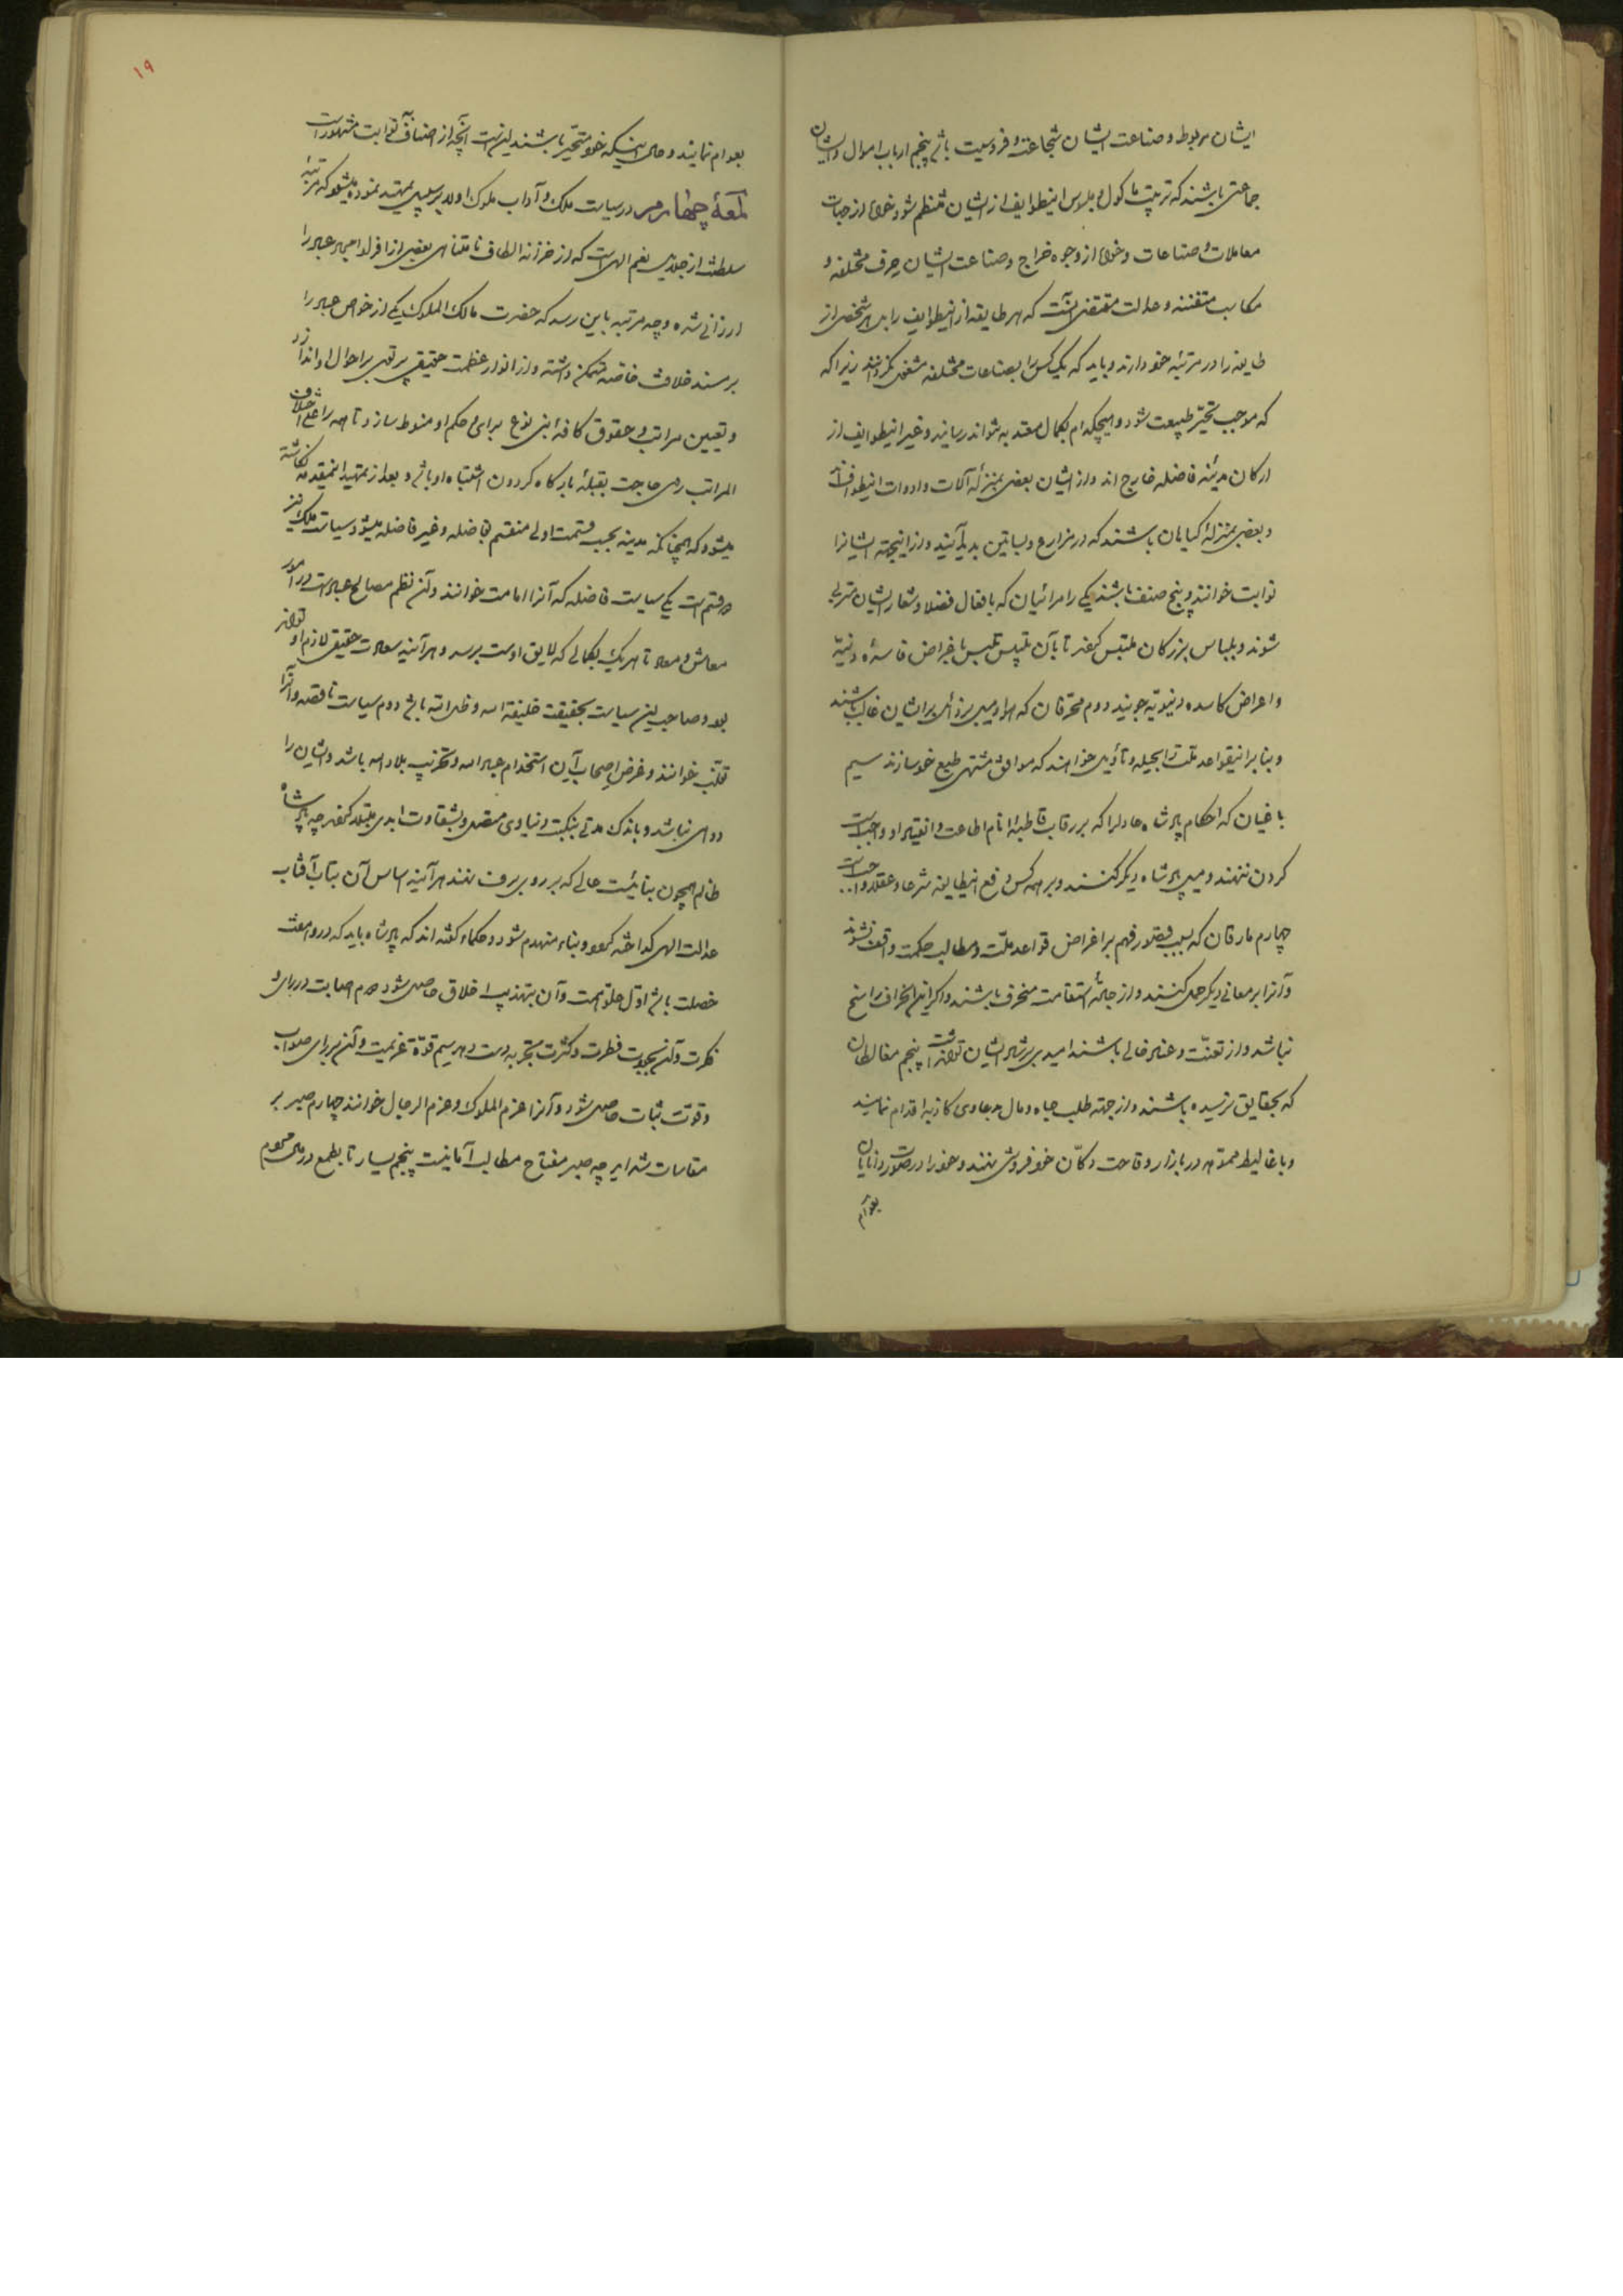 ایشان مربوط و صناعت ایشان شجاعت و فروسیت باشد پنجم ارباب اموال و ایشان
جماعتی باشند که ترتیب ماکول و ملبوس اینطوایف از ایشان منتظم شود خواه از جهات
معاملات و صناعات و خواه از وجوه خراج و صناعت ایشان حرف مختلفه و
مکاسب متفننه و عدالت مقتضی آنست که هر طایفه از اینطوایف را بل هر شخصی از
طایفه را در مرتبه خود دارند و باید که یک کس را بصناعات مختلفه مشغول نگردانند زیرا که
که موجب تحیّر طبیعت شود و هیچکدام بکمال معتد به نتواند رسانید و غیر اینطوایف از
ارکان مدینه فاضله خارج اند و از ایشان بعضی بمنزله آلات و ادوات اینطوایفند
و بعضی بمنزلهٔ گیاهان باشند که در مزارع و بساتین پدید آیند و از اینجهته ایشانرا
نوابت خوانند و پنج صنف باشند یکی را مرائیان که بافعال فضلا و شعار ایشان متزیی
شوند و بلباس بزرگان ملتبس گردند تا بآن تلبیس باغراض فاسده دنیّه
و اعراض کاسده دنیویّه جویند دوم محرّفان که هوا و میل برذائل بر ایشان غالب باشند
و بنا بر این قواعد ملت را بحیله و تأویل خواهند که موافق مشتهی طبع خود سازند سیم
باغیان که احکام پادشاه عادل را که بر رقاب قاطبه انام اطاعت و انقیاد او واجبست
گردن ننهند و میل پادشاه دیگر کنند و بر همه کس دفع اینطایفه شرعا و عقلا واجبست
چهارم مارقان که بسبب قصور فهم بر اغراض قواعد ملّت و مطالب حکمت واقف نشوند
و آنرا بر معانی دیگر حمل کنند و از جادّه استقامت منحرف باشند و اگر این انحراف راسخ
نباشد و از تعنّت و عناد خالی باشند امید برشد ایشان توان داشت پنجم مغالطان
که بحقایق نرسیده باشند و از جهته طلب جاه و مال بدعاوی کاذبه اقدام نمایند
و باغالیط مموّهه در بازار وقاحت دکّان خودفروشی نهند و خود را در صورت دانایان
بعوام
۱۹
بعوام نمایند و حال اینکه خود متحیّر باشند اینست آنچه از اصناف نوابت مشهور است
لمعهٔ چهارم در سیاست ملک و آداب ملوک اولا بر سبیل تمهید نموده میشود که مرتبه
سلطنت از جلایل نعم الهی است که از خزانه الطاف نامتناهی بعضی از افراد عباد را
ارزانی شده و چه مرتبه باین رسد که حضرت مالک الملوک یکی از خواص عباد را
بر مسند خلافت خاصه متمکن داشته و از انوار عظمت حقیقی پرتوی بر احوال او اندازد
و تعیین مراتب و حقوق کافه ابنی نوع برای و حکم او منوط سازد تا همه را علی اختلاف
المراتب روی حاجت بقبلهٔ بارگاه گردون اشتباه او باشد و بعد از تمهید اینمقدمه نگاشته
میشود که همچنانکه مدینه بحسب قسمت اولی منقسم بفاضله و غیر فاضله میشود سیاست ملک نیز
دو قسم است یکی سیاست فاضله که آنرا امامت خوانند و آن نظم مصالح عباد است در امور
معاش و معاد تا هر یک بکمالی که لایق اوست برسد و هر آینه سعادت حقیقی لازم او تواند
بود و صاحب این سیاست بحقیقت خلیفة الله و ظل الله باشد دوم سیاست ناقصه و آنرا
تغلّب خوانند و غرض اصحاب آن استخدام عباد الله و تخریب بلاد الله باشد و ایشان را
دوامی نباشد و باندک مدتی بنکبت دنیاوی متصل و بشقاوت ابدی مبتلا گردند چه پادشاه
ظالم همچون بنائیست عالی که بر روی برف نهند هر آینه اساس آن بتاب آفتاب
عدالت الهی گداخته گردد و بناء منهدم شود و حکماء گفته اند که پادشاه باید که در و هفت
خصلت باشد اول علو همت و آن بتهذیب اخلاق حاصل شود دوم اصابت در رای و
فکرت و آن بجودت فطرت و کثرت تجربه دست دهد سیم قوّة عزیمت و آن برای صواب
و قوّت ثبات حاصل شود و آنرا عزم الملوک و عزم الرجال خوانند چهارم صبر بر
مقاسات شداید چه صبر مفتاح مطالب آمانیست پنجم یسار تا بطمع در مال مردم